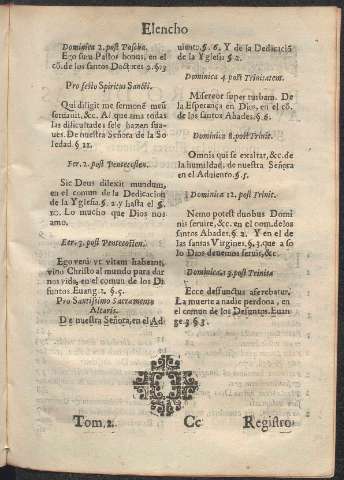 Elencho
Dominica 2. post Pascha.
Ego sum Pastor bonus, en el
cō. de los santos Doctores 2. §.3
Pro festo Spiritus Sancti.
Qui diligit me sermonē meū
seruauit, &c. Al que ama todas
las dificultades se le hazen suaues.
De nuestra Señora de la Soledad.
§ 11.
Fer. 2. post Pentecosten.
Sic Deus dilexit mundum,
en el comun de la Dedicacion
de la Yglesia. §. 2. y hasta el §.
10. Lo mucho que Dios nos
amo.
Fer. 3. post Pentecosten.
Ego veni vt vitam habeant,
vino Christo al mundo para dar
nos vida, en el comun de los Difuntos
Euang. 2. §. 5.
Pro Santissimo Sacramento
Altaris.
De nuestra Señora, en el Ad
uiento. §. 6. Y de la Dedicaciō
de la Yglesia § 2.
Dominica 4 post Trinitatem.
Misereor super turbam. De
la Esperança en Dios, en el cō.
de los santos Abades. §. 6.
Dominica 8. post Trinit.
Omnis qui se exaltat, &c. de
la humildad, de nuestra Señora
en el Aduiento. §. 5.
Dominica 12. post Trinit.
Nemo potest duobus Domi
nis seruire, &c. en el com. de los
santos Abades. §. 2. Y en el de
las santas Virgines. §. 3. que a so
lo Dios deuemos seruir, &c.
Dominica 13. post Trinita
Ecce deffunctus aferebatur.
La muerte a nadie perdona, en
el comun de los Defuntos. Euan
ge. 3 § 3.
Tom. 2. Cc Registro